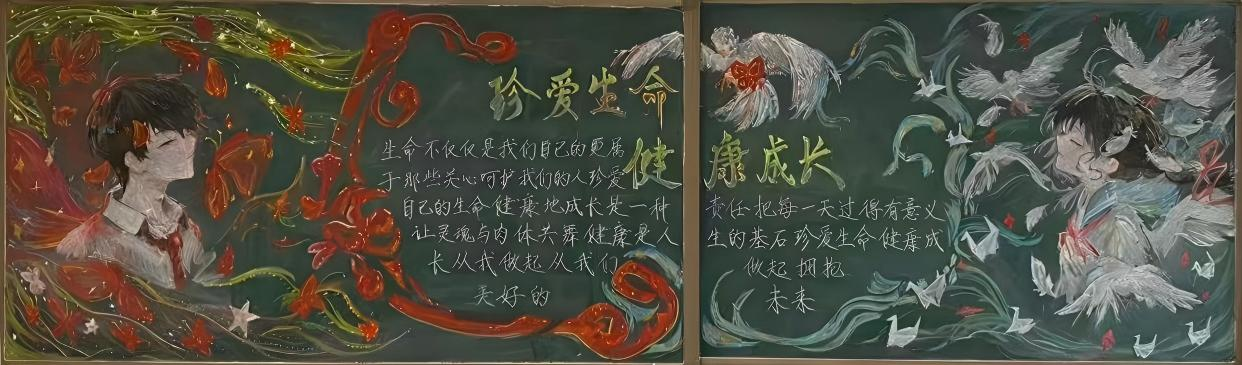 珍爱生命
健康成长
生命不仅仅是我们自己的更属
于那些关心呵护我们的人珍爱
自己的生命健康地成长是一种责任把每一天过得有意义
让灵魂与肉体共舞健康是人生的基石珍爱生命健康成
长从我做起从我们做起拥抱
美好的未来